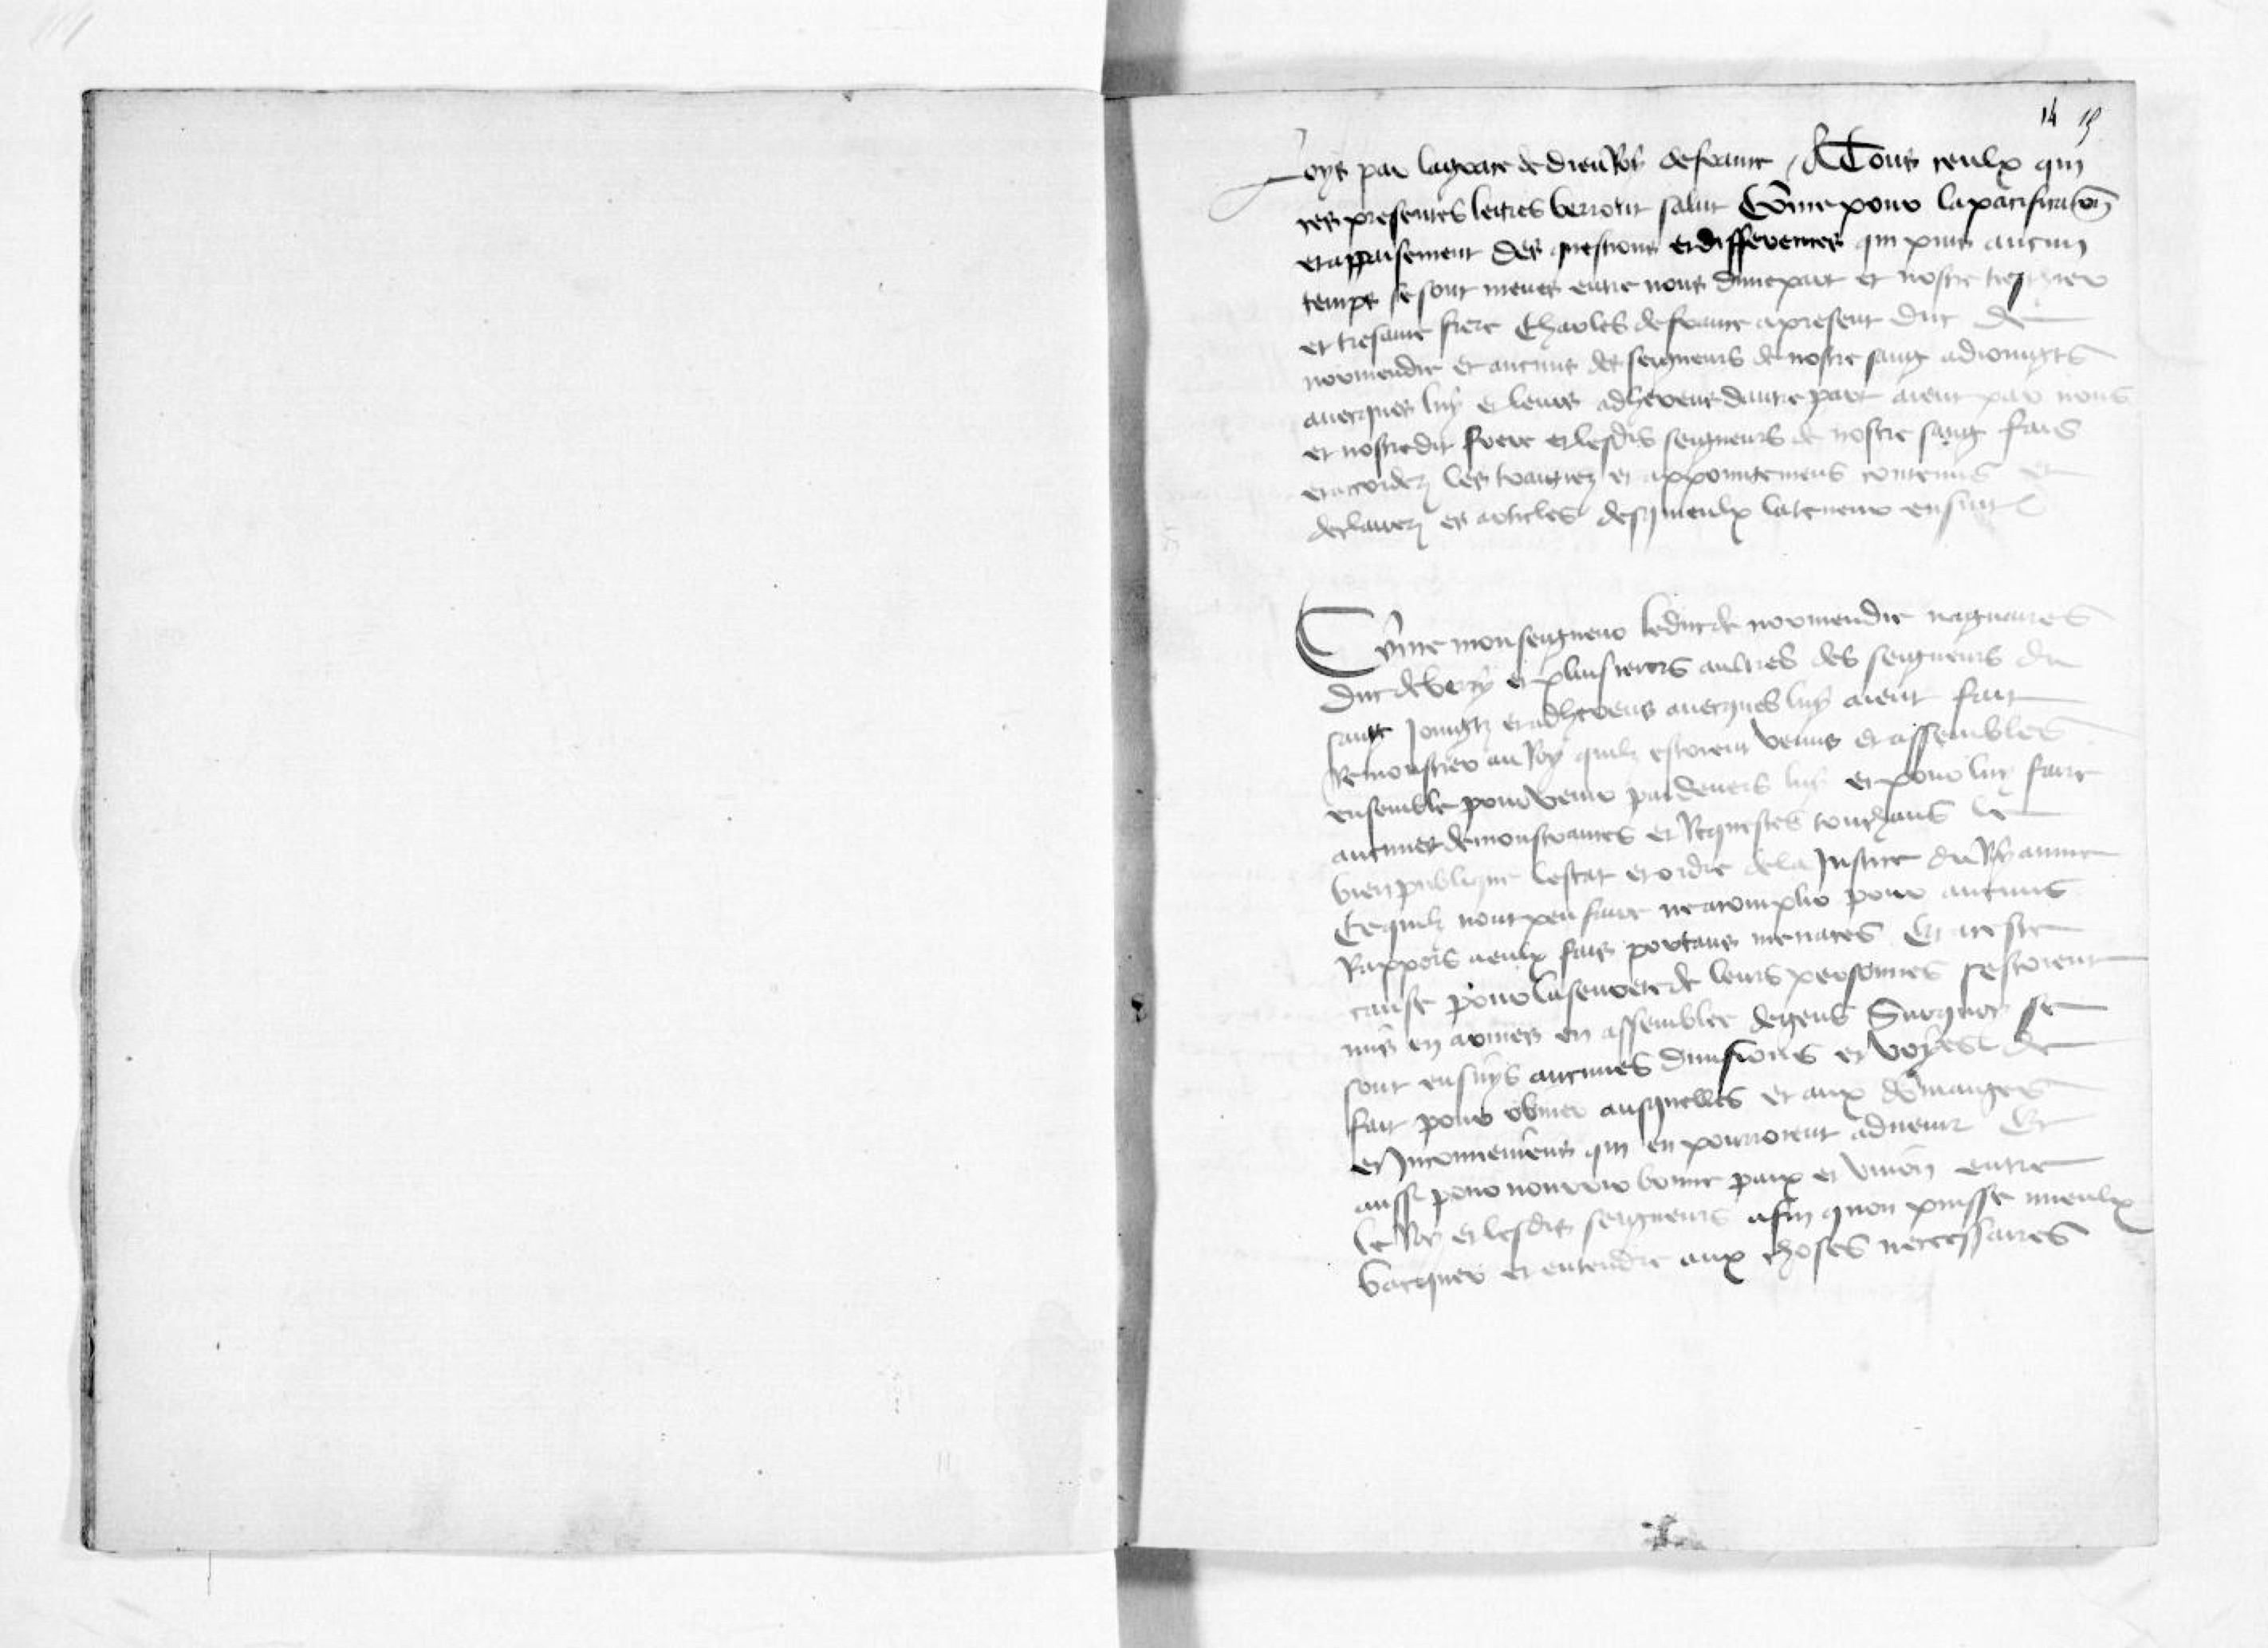 14 15
Loys par la grace de dieu Roy de france / A Tous ceulx qui
ces presentes lettres verront salut Cõme pour la pacificacion
et appaisement des questions et differences qui puis aucun
temps se sont meues entre nous dune part et nostre treschier
et tresame frere Charles de france apresent duc de
normendie et aucuns des seigneurs de nostre sang adioingts
auecques luy et leurs adherens dautre part aient par nous
et nostredit frere et lesdis seigneurs de nostre sang fais
et accordez les traictiez et appointemens contenus et
declairez es articles desquieulx la teneur ensuit
Cõme monseigneur le duc de normendie naguaires
duc de berry et plusieurs aultres des seigneurs du
sang joingtz et adherens auecques luy aient fait
Remonstrer au Roy quilz estoient venus et assembles
ensemble pour venir par deuers luy et pour luy faire
aucunes demonstrances et Requestes touchans le
bien publique lestat et ordre de la justice du Royaume
Ce quilz nont peu faire ne acomplir pour aucuns
Rappors a eulx fais portans menaces Et a ceste
cause pour la seurete de leurs personnes sestoient
mis en armes en assemblee de gens Surquoy se
sont ensuys aucunes diuisions et voyes de
fait pour obuier ausquelles et aux dõmaiges
et Inconueniens qui en pourroient aduenir Et
aussi pour nourrir bonne paix et vnion entre
le Roy et lesdis seigneurs afin quon puisse mieulx
vacquer et entendre aux choses neccessaires